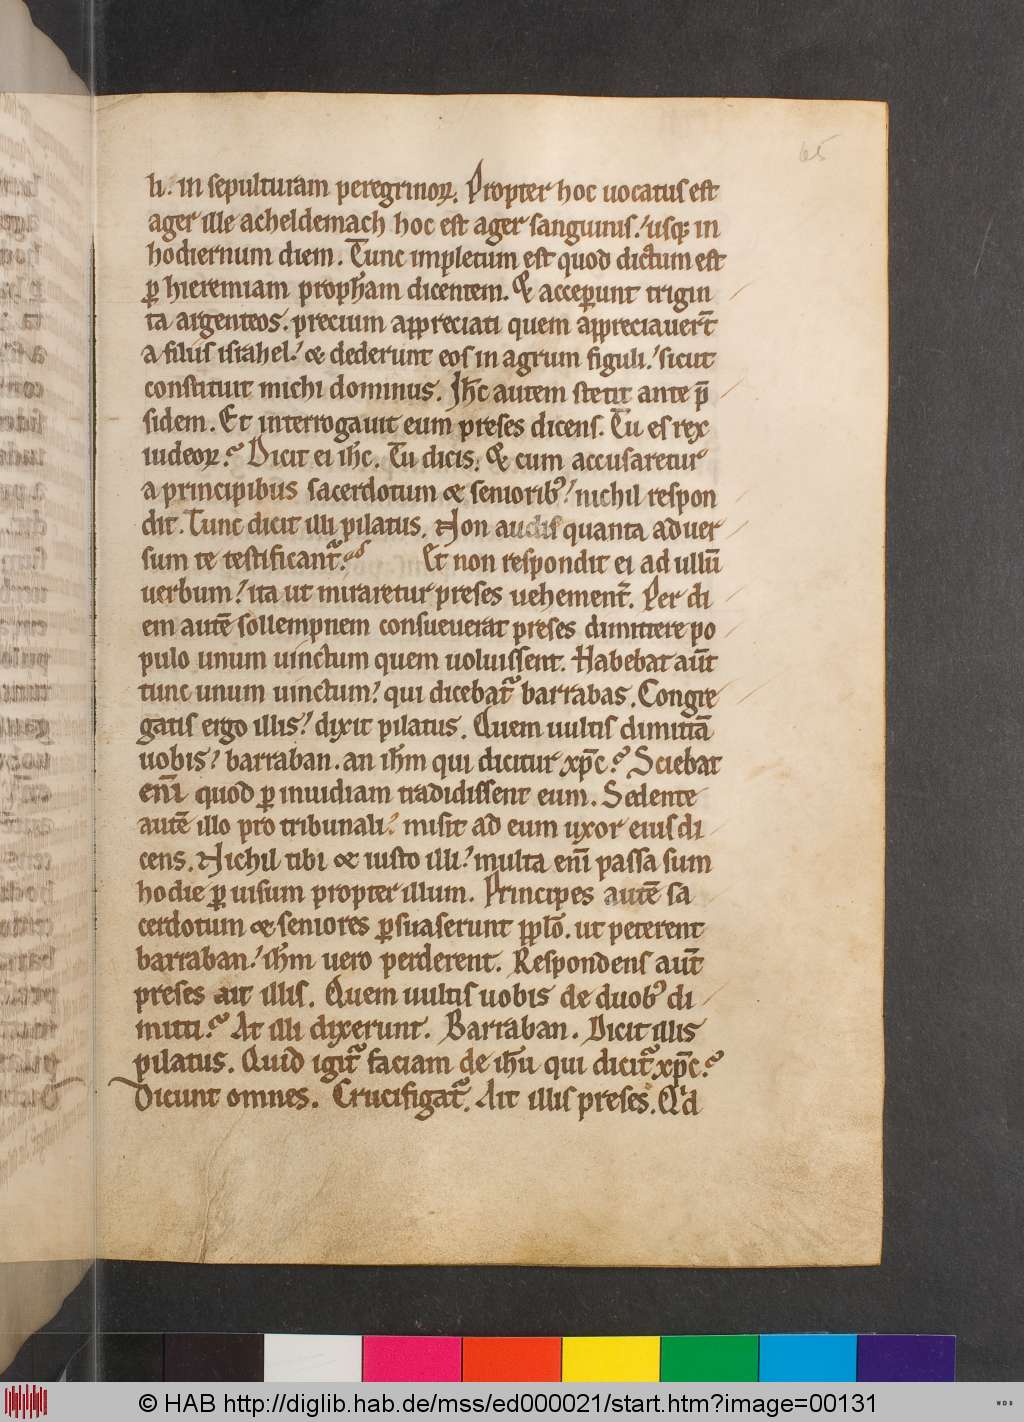 65
li. in sepulturam peregrinoꝝ. Propter hoc uocatus est
ager ille acheldemach hoc est ager sanguinis. usqꝫ in
hodiernum diem. Tunc impletum est quod dictum est
ꝑ hieremiam propham dicentem. Et acceperunt trigin
ta argenteos. precium appreciati quem appreciauert̄
a filiis israhel. ⁊ dederunt eos in agrum figuli. sicut
constituit michi dominus. Ihc̄ autem stetit ante p̄
sidem. Et interrogauit eum preses dicens. Tu es rex
iudeoꝝ? Dicit ei ihc̄. Tu dicis. Et cum accusaretur
a principibus sacerdotum ⁊ seniorib; nichil respon
dit. Tunc dicit illi pilatus. Non audis quanta aduer
sum te testificant᷑? Et non respondit ei ad ullū
uerbum. ita ut miraretur preses uehement̄. Per di
em autē sollempnem consueuerat preses dimittere po
pulo unum uinctum quem uoluissent. Habebat aūt
tunc unum uinctum. qui dicebat᷑ barrabas. Congre
gatis ergo illis. dixit pilatus. Quem uultis dimittā
uobis. barraban. an ihm̄ qui dicitur xpc̄? Sciebat
enī quod ꝑ inuidiam tradidissent eum. Sedente
autē illo pro tribunali. misit ad eum uxor eius di
cens. Nichil tibi ⁊ iusto illi. multa enī passa sum
hodie ꝑ uisum propter illum. Principes autē sa
cerdotum ⁊ seniores ꝑsuaserunt pplō. ut peterent
barraban. ihm̄ uero perderent. Respondens aūt
preses ait illis. Quem uultis uobis de duob; di
mitti? At illi dixerunt. Barraban. Dicit illis
pilatus. Quid igit᷑ faciam de ihū qui dicit᷑ xpc̄?
Dicunt omnes. Crucifigat᷑. Ait illis preses. Qͥd
© HAB http://diglib.hab.de/mss/ed000021/start.htm?image=00131